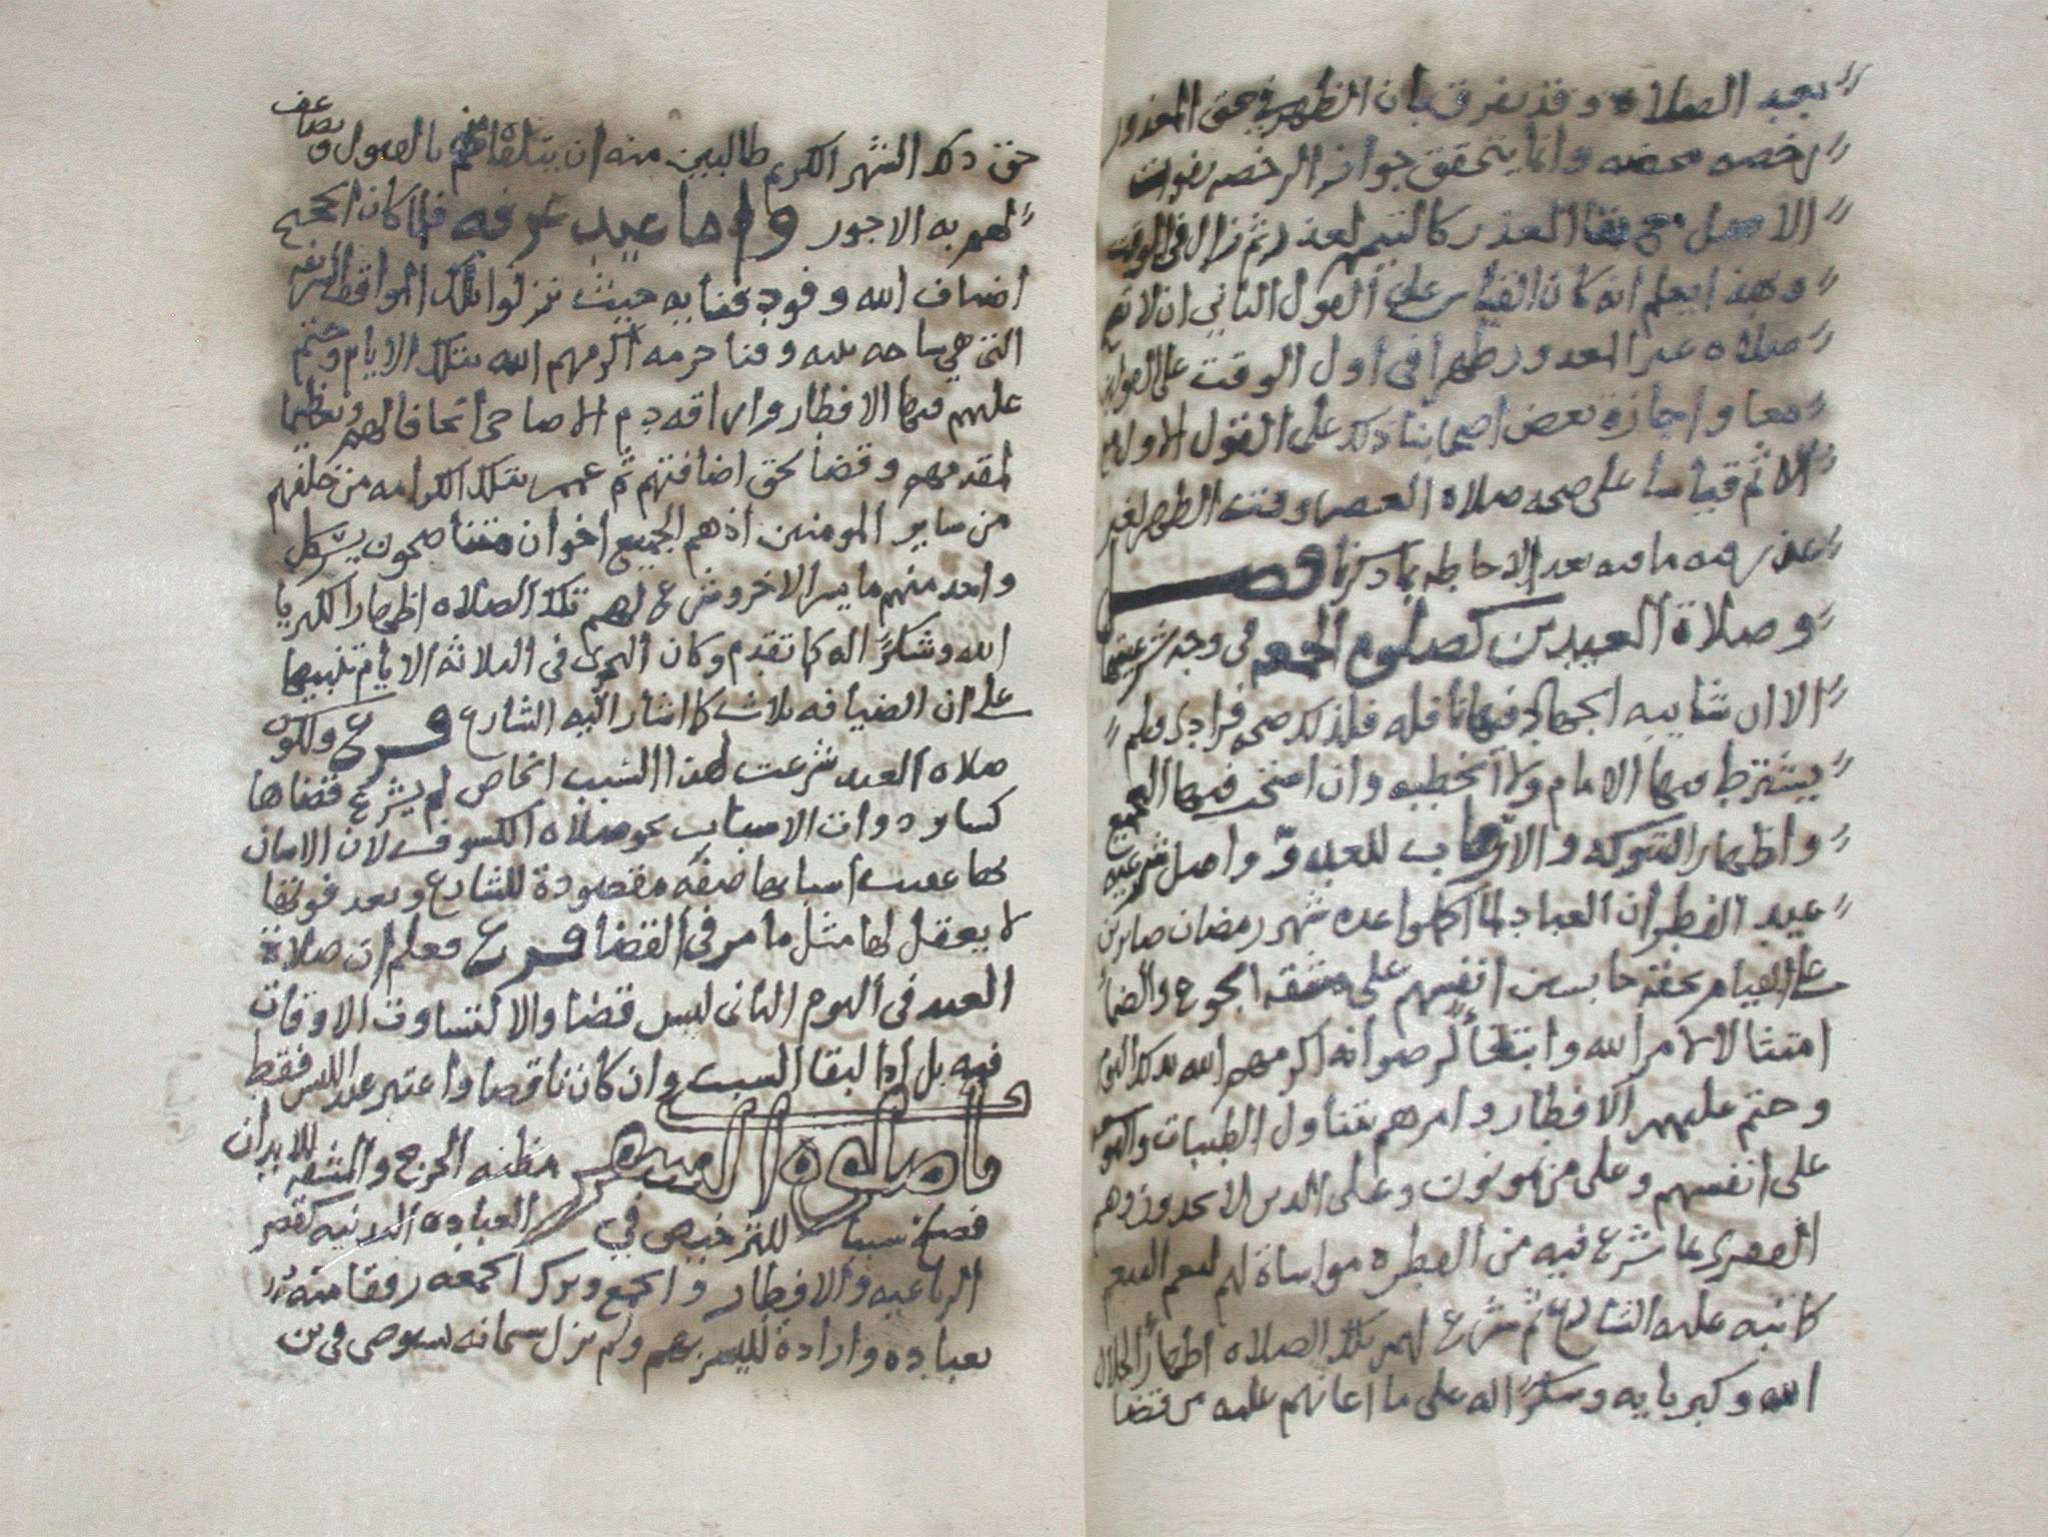 بعد الصلاة وقد يفرق بان الظهر في حق المعذور
رخصه محضه وانما يتحقق جواز الرخصه بفوات
الاصل مع بقا العذر كالتيمم لعذر ثم زال في الوقت
وبهذا يعلم انه كان القياس على القول الثاني ان لا تصح
صلاه غير المعدور ظهرا في اول الوقت على القولين
معا واجازة بعض اصحابنا ذلك على القول الاول مع
الاثم قياسا على صحه صلاه العصر وقت الظهر لغير
عذر فيه ما فيه بعد الاحاطه بما ذكرنا فصل
وصلاة العيدين كصلوة الجمعه في وجه شرعيتها
الا ان شايبه الجهاد فيها نافله فلذلك صحه فرادى ولم
يشترط فيها الامام ولا الخطبه وان استحب فيها التجمع
واظهار الشوكه والارهاب للعدو واصل شرعيه
عيد الفطر ان العباد لما اكملوا عده شهر رمضان صابرين
على القيام بحقه حابسين انفسهم على مشقه الجوع والضما
امتثالا لامر الله وابتغا لرضوانه اكرمهم الله بذلك اليوم
وحتم عليهم الافطار وامرهم بتناول الطيبات والتوسعه
على انفسهم وعلى من يمونون وعلى الدين لا يجدون وهم
الفقرى بما شرع فيه من الفطره مواساة لهم ليعم النفع
كما نبه عليه الشارع ثم شرع لهم تلك الصلاه اظهارا لجلال
الله وكبريايه وشكرا له على ما اعانهم عليه من قضا
حق ذلك الشهر الكريم طالبين منه ان يتلقاه منهم بالقبول ويضاعف
لهم به الاجور واما عيد عرفه فلما كان الحجيج
اضياف الله وفود فنايه حيث نزلوا بتلك المواقف الشريفه
التي هي ساحه بيته وفنا حرمه اكرمهم الله بتلك الايام وحتم
عليهم فيها الافطار واراقه دم الاضاحي اتحافا لهم وتعظيما
لمقدمهم وقضا لحق اضافتهم ثم عمم بتلك الكرامه من خلفهم
من ساير المومنين اذ هم الجميع اخوان متناصحون يسر كل
واحد منهم ما يسر الاخر وشرع لهم تلك الصلاه اظهارا لكبريا
الله وشكرا له كما تقدم وكان النحر في الثلاثه الايام تنبيها
على ان الضيافه ثلاث كما اشار اليه الشارع فرع ولكون
صلاه العيد شرعت لهذا السبب الخاص لم يشرع قضاها
كساير دوات الاسباب نحو صلاه الكسوف لان الاتيان
بها عقيب اسبابها صفه مقصودة للشارع وبعد فوتها
لا يعقل لها مثل ما مر في القضا فرع فعلم ان صلاة
العيد في اليوم الثاني ليس قضا والا لتساوت الاوقات
فيه بل ادا لبقا السبب وان كان ناقصا واعتبر عند اللبس فقط
واما صلوة السفر مظنه الحرج والمشقه للابدان
فصلح سببا للترخيص في العباده البدنيه كقصر
الرباعيه والافطار والجمع وترك الجمعه رفقا منه
بعباده وارادة لليسر بهم ولم يزل سبحانه يوصي في